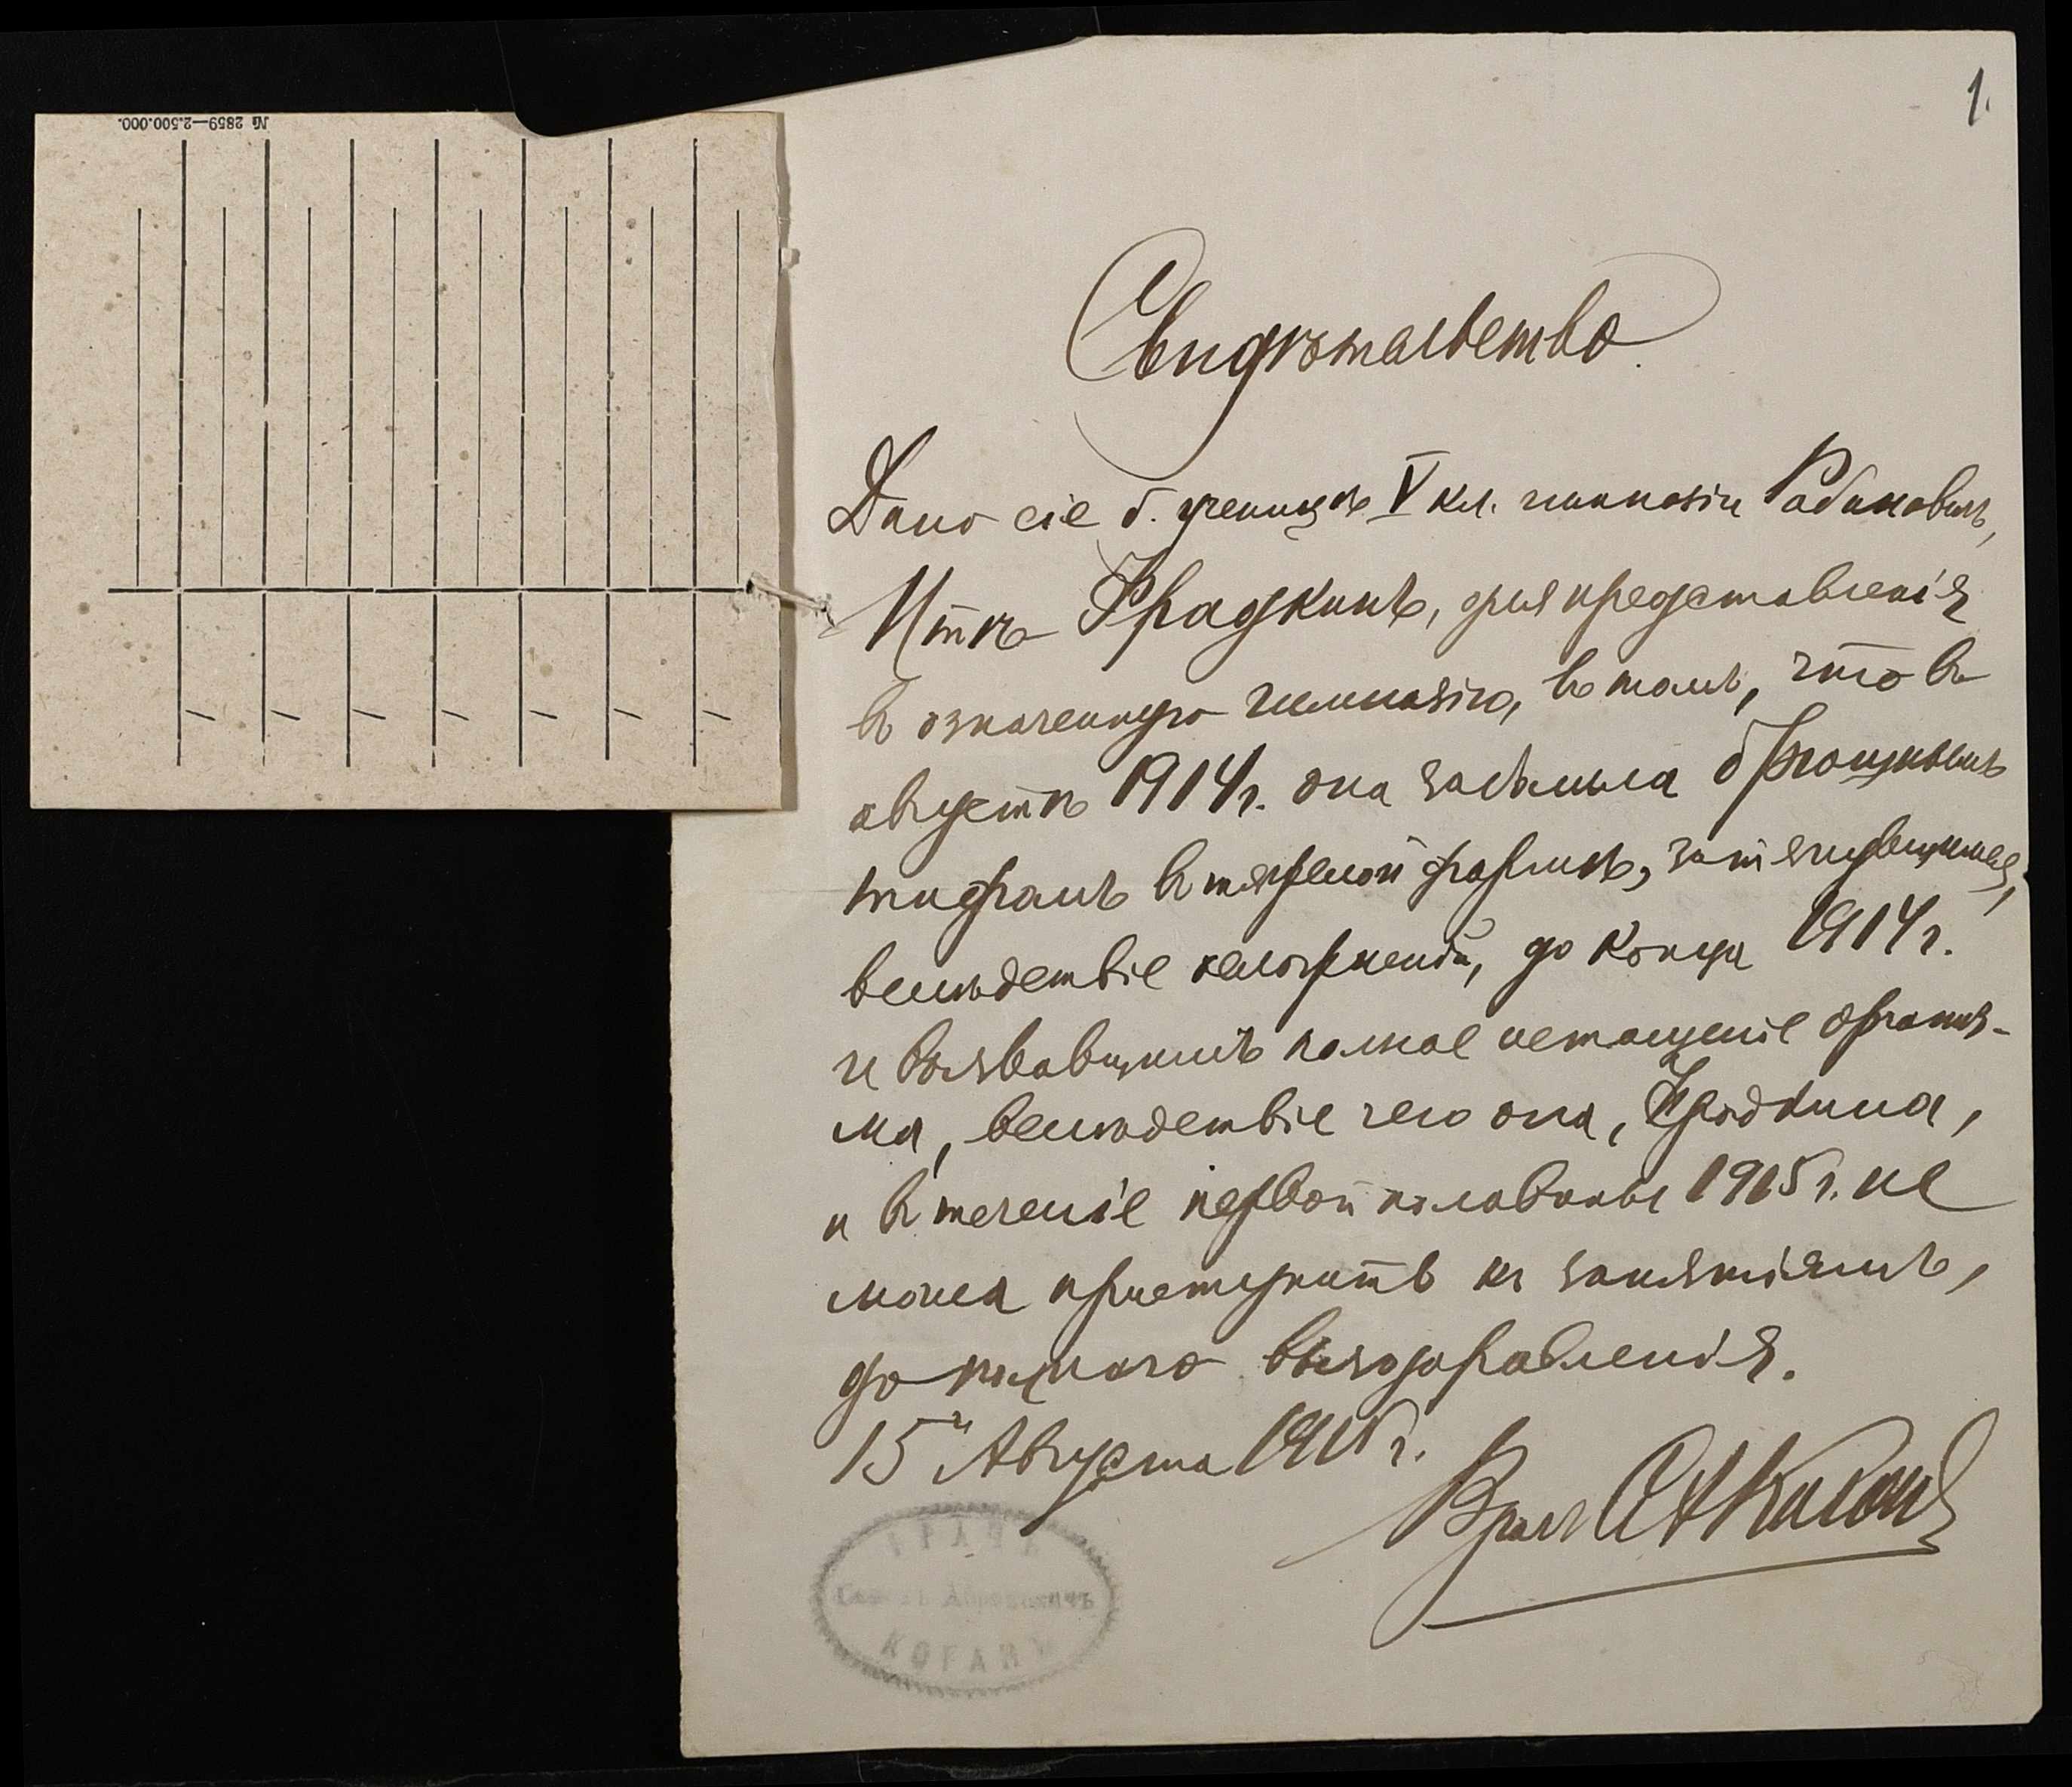 № 2859—2.500.000.
1.
Свидѣтельство.
Дано сіе б. ученицѣ V кл. гимназіи Рабиновичъ,
Итѣ Фрадкинъ, для представленія
въ означенную гимназію, въ томъ, что въ
августѣ 1914 г. она заболѣла брюшнымъ
тифомъ въ тяжелой формѣ, затянувшимся,
вслѣдствіе осложненій, до конца 1914 г.
и вызвавшимъ полное истощеніе организ-
ма, вслѣдствіе чего она, Фрадкина,
и въ теченіе первой половины 1915 г. не
могла приступить къ занятіямъ,
до полнаго выздоровленія.
15 Августа 1915 г.
Врачъ С А Коганъ
ВРАЧЪ
Абрамовичъ
КОГАНЪ